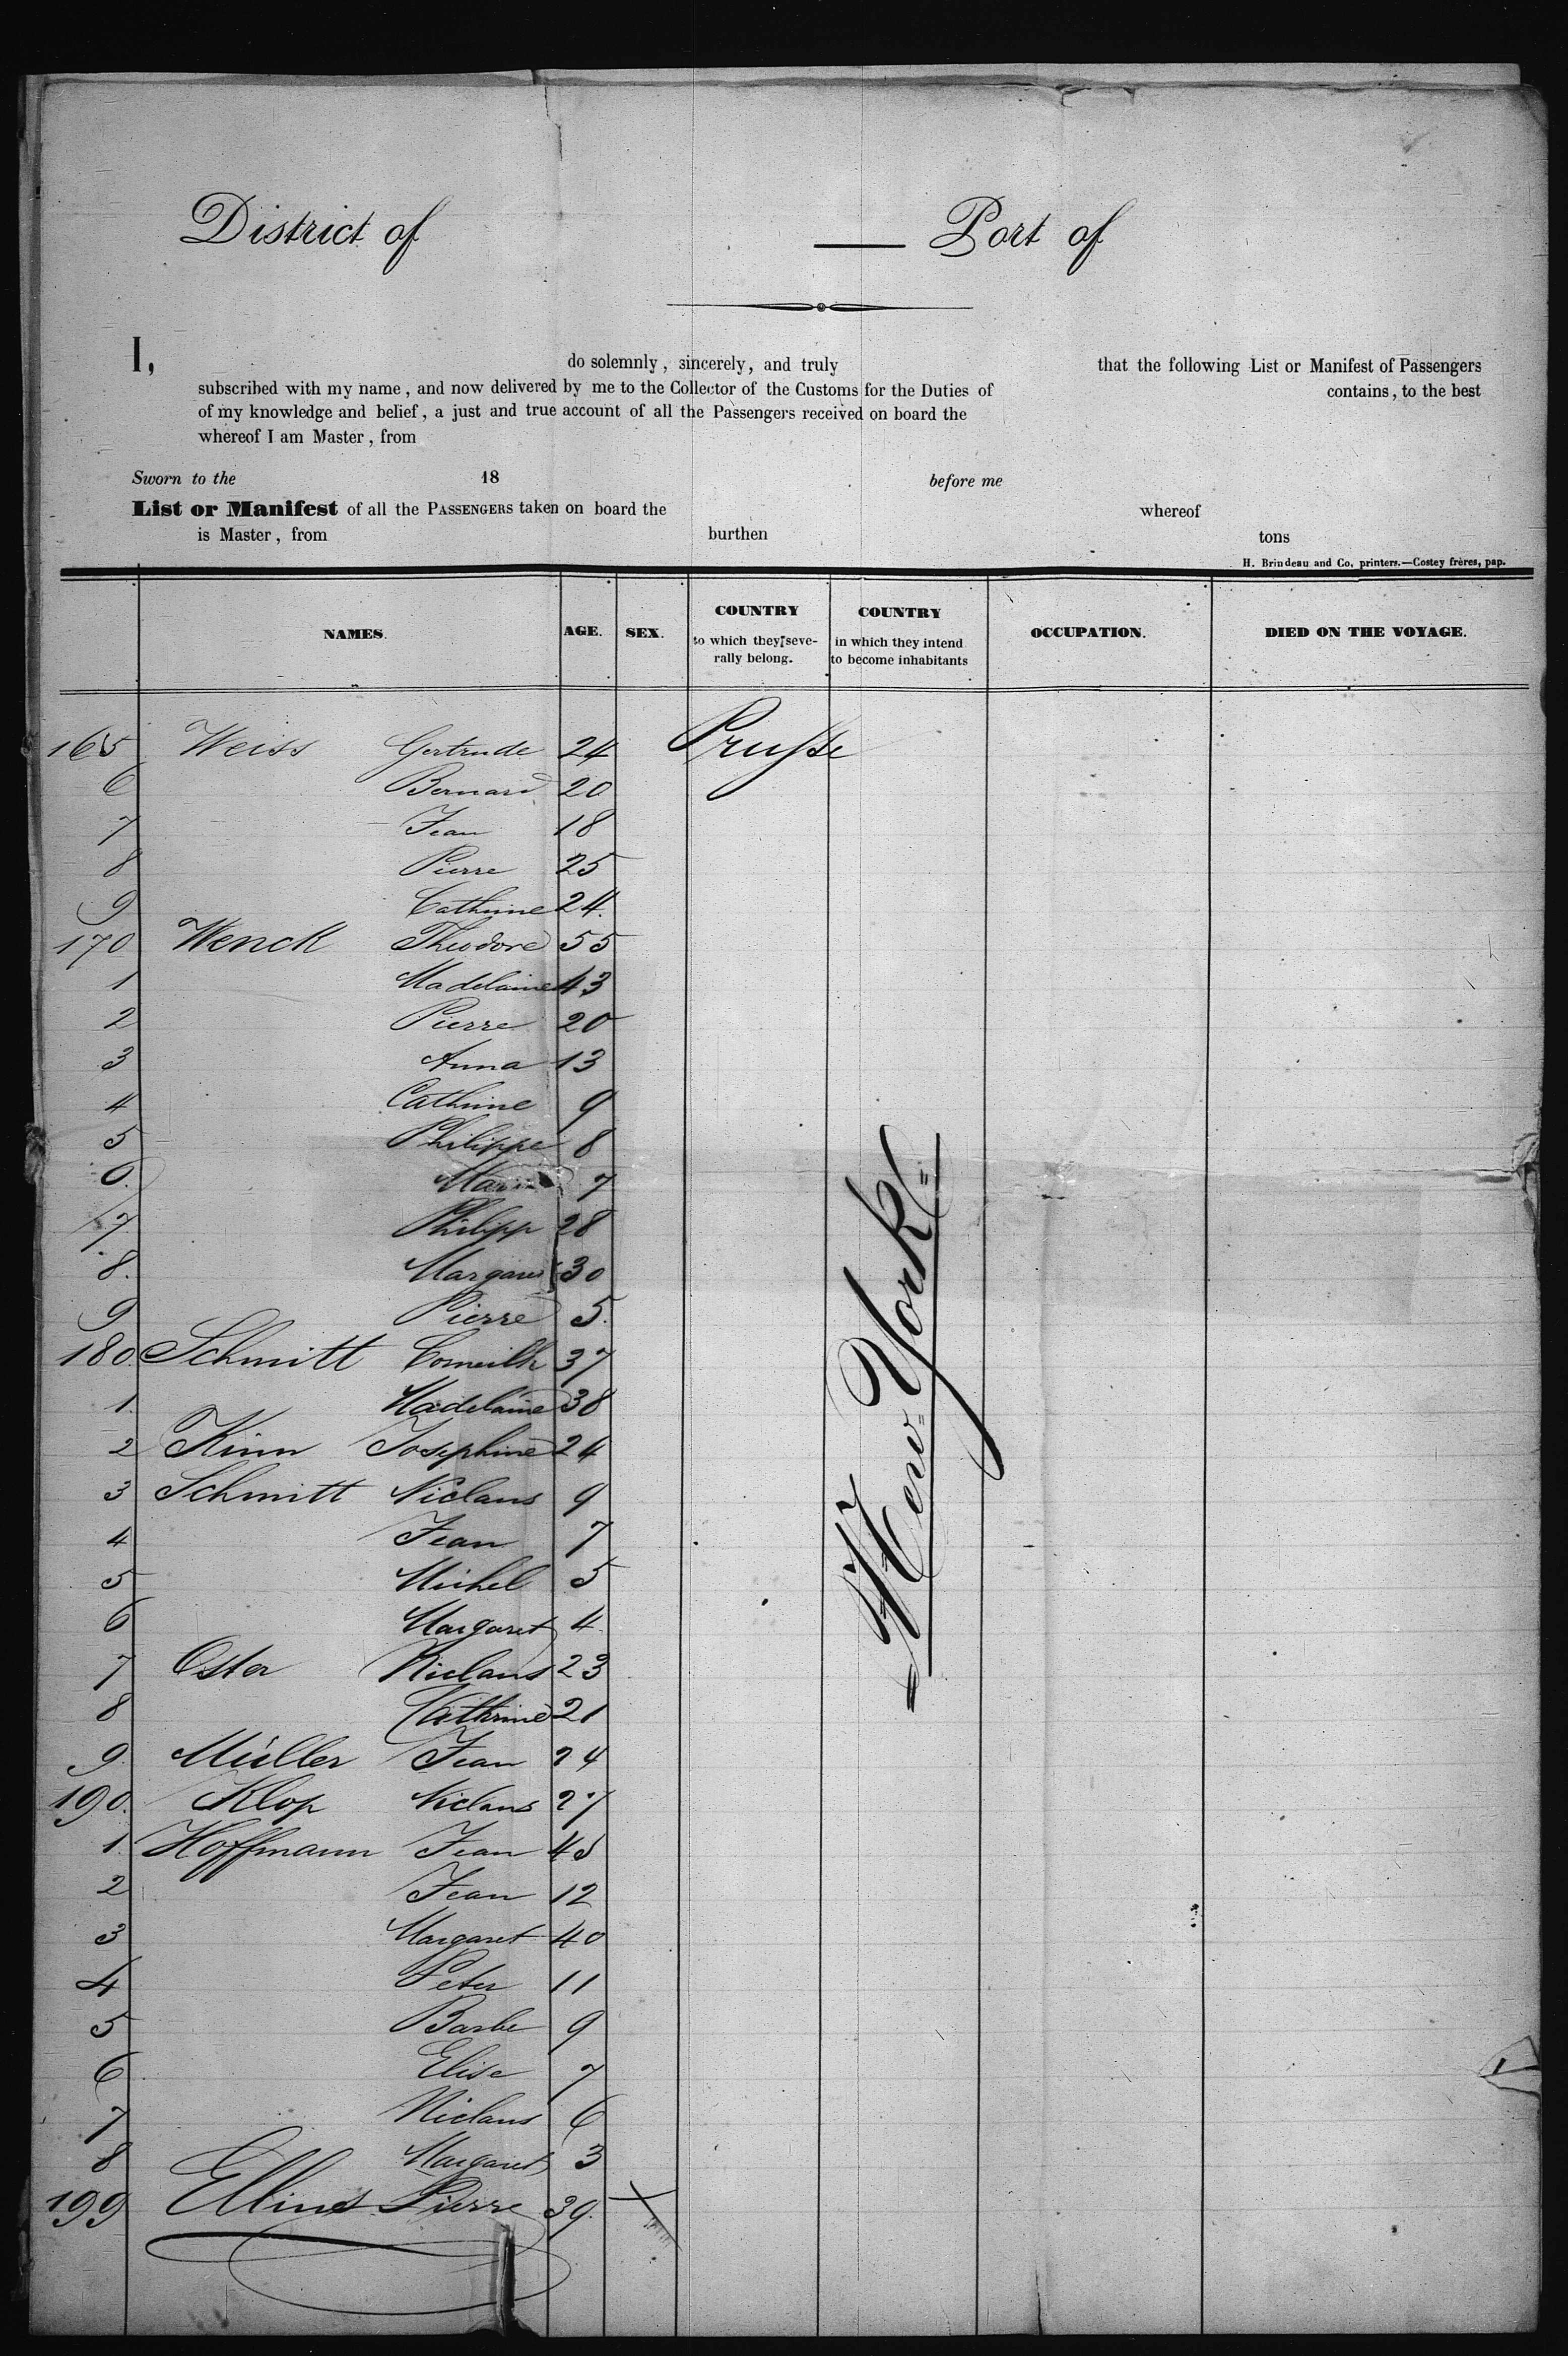 District of — Port of
I, do solemnly, sincerely, and truly that the following List or Manifest of Passengers
subscribed with my name, and now delivered by me to the Collector of the Customs for the Duties of contains, to the best
of my knowledge and belief, a just and true account of all the Passengers received on board the
whereof I am Master, from
Sworn to the 18 before me
List or Manifest of all the PASSENGERS taken on board the whereof
is Master, from burthen tons
H. Brindeau and Co, printers.—Costey frères, pap.
NAMES. AGE. SEX. COUNTRY to which they seve-rally belong. COUNTRY in which they intend to become inhabitants OCCUPATION. DIED ON THE VOYAGE.
165 Weiss Gertrude 24 Prusse
6 Bernard 20
7 Jean 18
8 Pierre 25
9 Cathrine 24.
170 Wenck Theodore 55
1 Madelaine 43
2 Pierre 20
3 Anna 13
4 Cathrine 9
5 Philippe 8
6. 7
7 Philipp 28
8. Margaret 30
9 Pierre 5.
180 Schmitt 37
1. Madelaine 38
2 Kinn Josephine 24
3 Schmitt Niclaus 9
4 Jean 7
5 Michel 5
6 Margaret 4
7 Oster Niclaus 23
8 Cathrine 21
9. Müller Jean 24
190. Klop Niclaus 27
1. Hoffmann Jean 45
2 Jean 12
3 Margaret 40
4 Peter 11
5 Barbe 9
6 Elise 7
7 Niclaus 6
8 Margaret 3
199 Pierre 39.
New-York